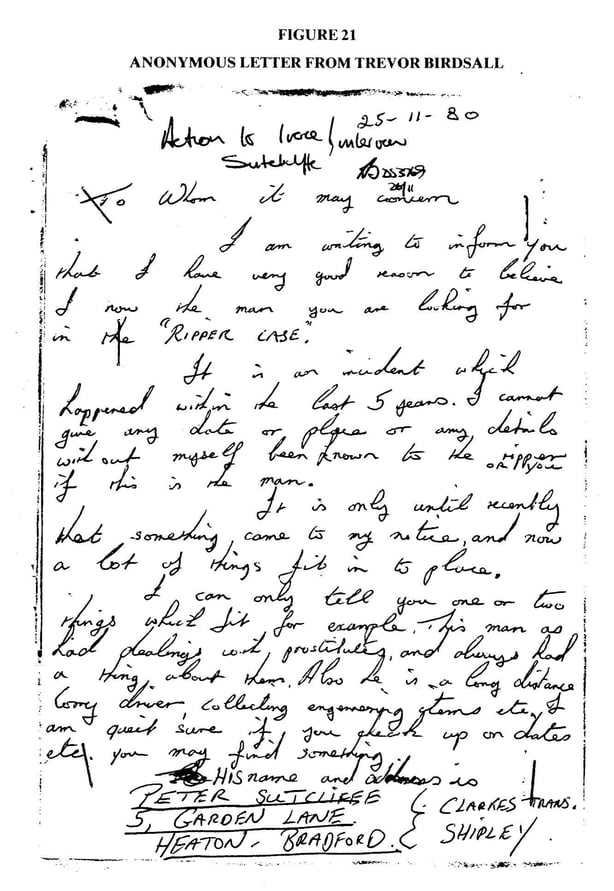 FIGURE 21
ANONYMOUS LETTER FROM TREVOR BIRDSALL
25-11-80
Action to trace / interview
Sutcliffe
26/11
To Whom it may concern
I am writing to inform you
that I have very good reason to believe
I now the man you are looking for
in the "RIPPER CASE".
It is an incident which
happened within the last 5 years. I cannot
give any date or place or any details
without myself been known to the ripper
OR you
if this is the man.
It is only until recently
that something came to my notice, and now
a lot of things fit in to place.
I can only tell you one or two
things which fit for example. This man as
had dealings with prostitutes, and always had
a thing about them. Also he is a long distance
lorry driver, collecting engineering items etc. I
am quiet sure if you check up on dates
etc. you may find something
HIS name and address is
PETER SUTCLIFFE
5, GARDEN LANE.
HEATON, BRADFORD.
CLARKES TRANS.
SHIPLEY